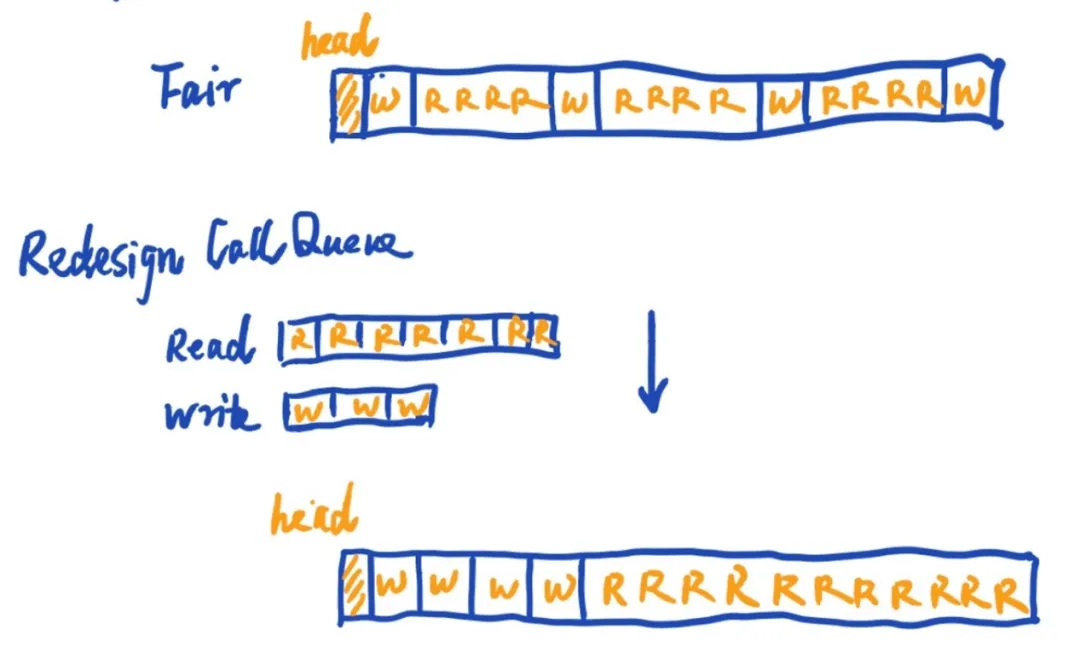 head
Fair W R R R R W R R R R W R R R R W
Redesign Call Queue
Read R R R R R R R
Write W W W
head
W W W W R R R R R R R R R R R